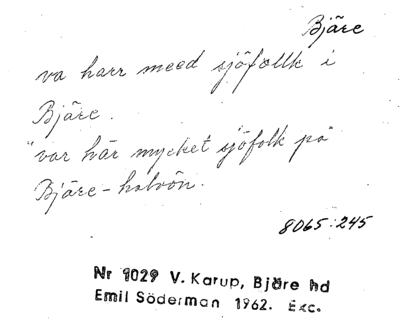 Bjäre
va harr meed sjöfollk i
Bjäre.
"var här mycket sjöfolk på
Bjäre-halvön.
8065:245
Nr 1029 V. Karup, Bjäre hd
Emil Söderman 1962. Exc.